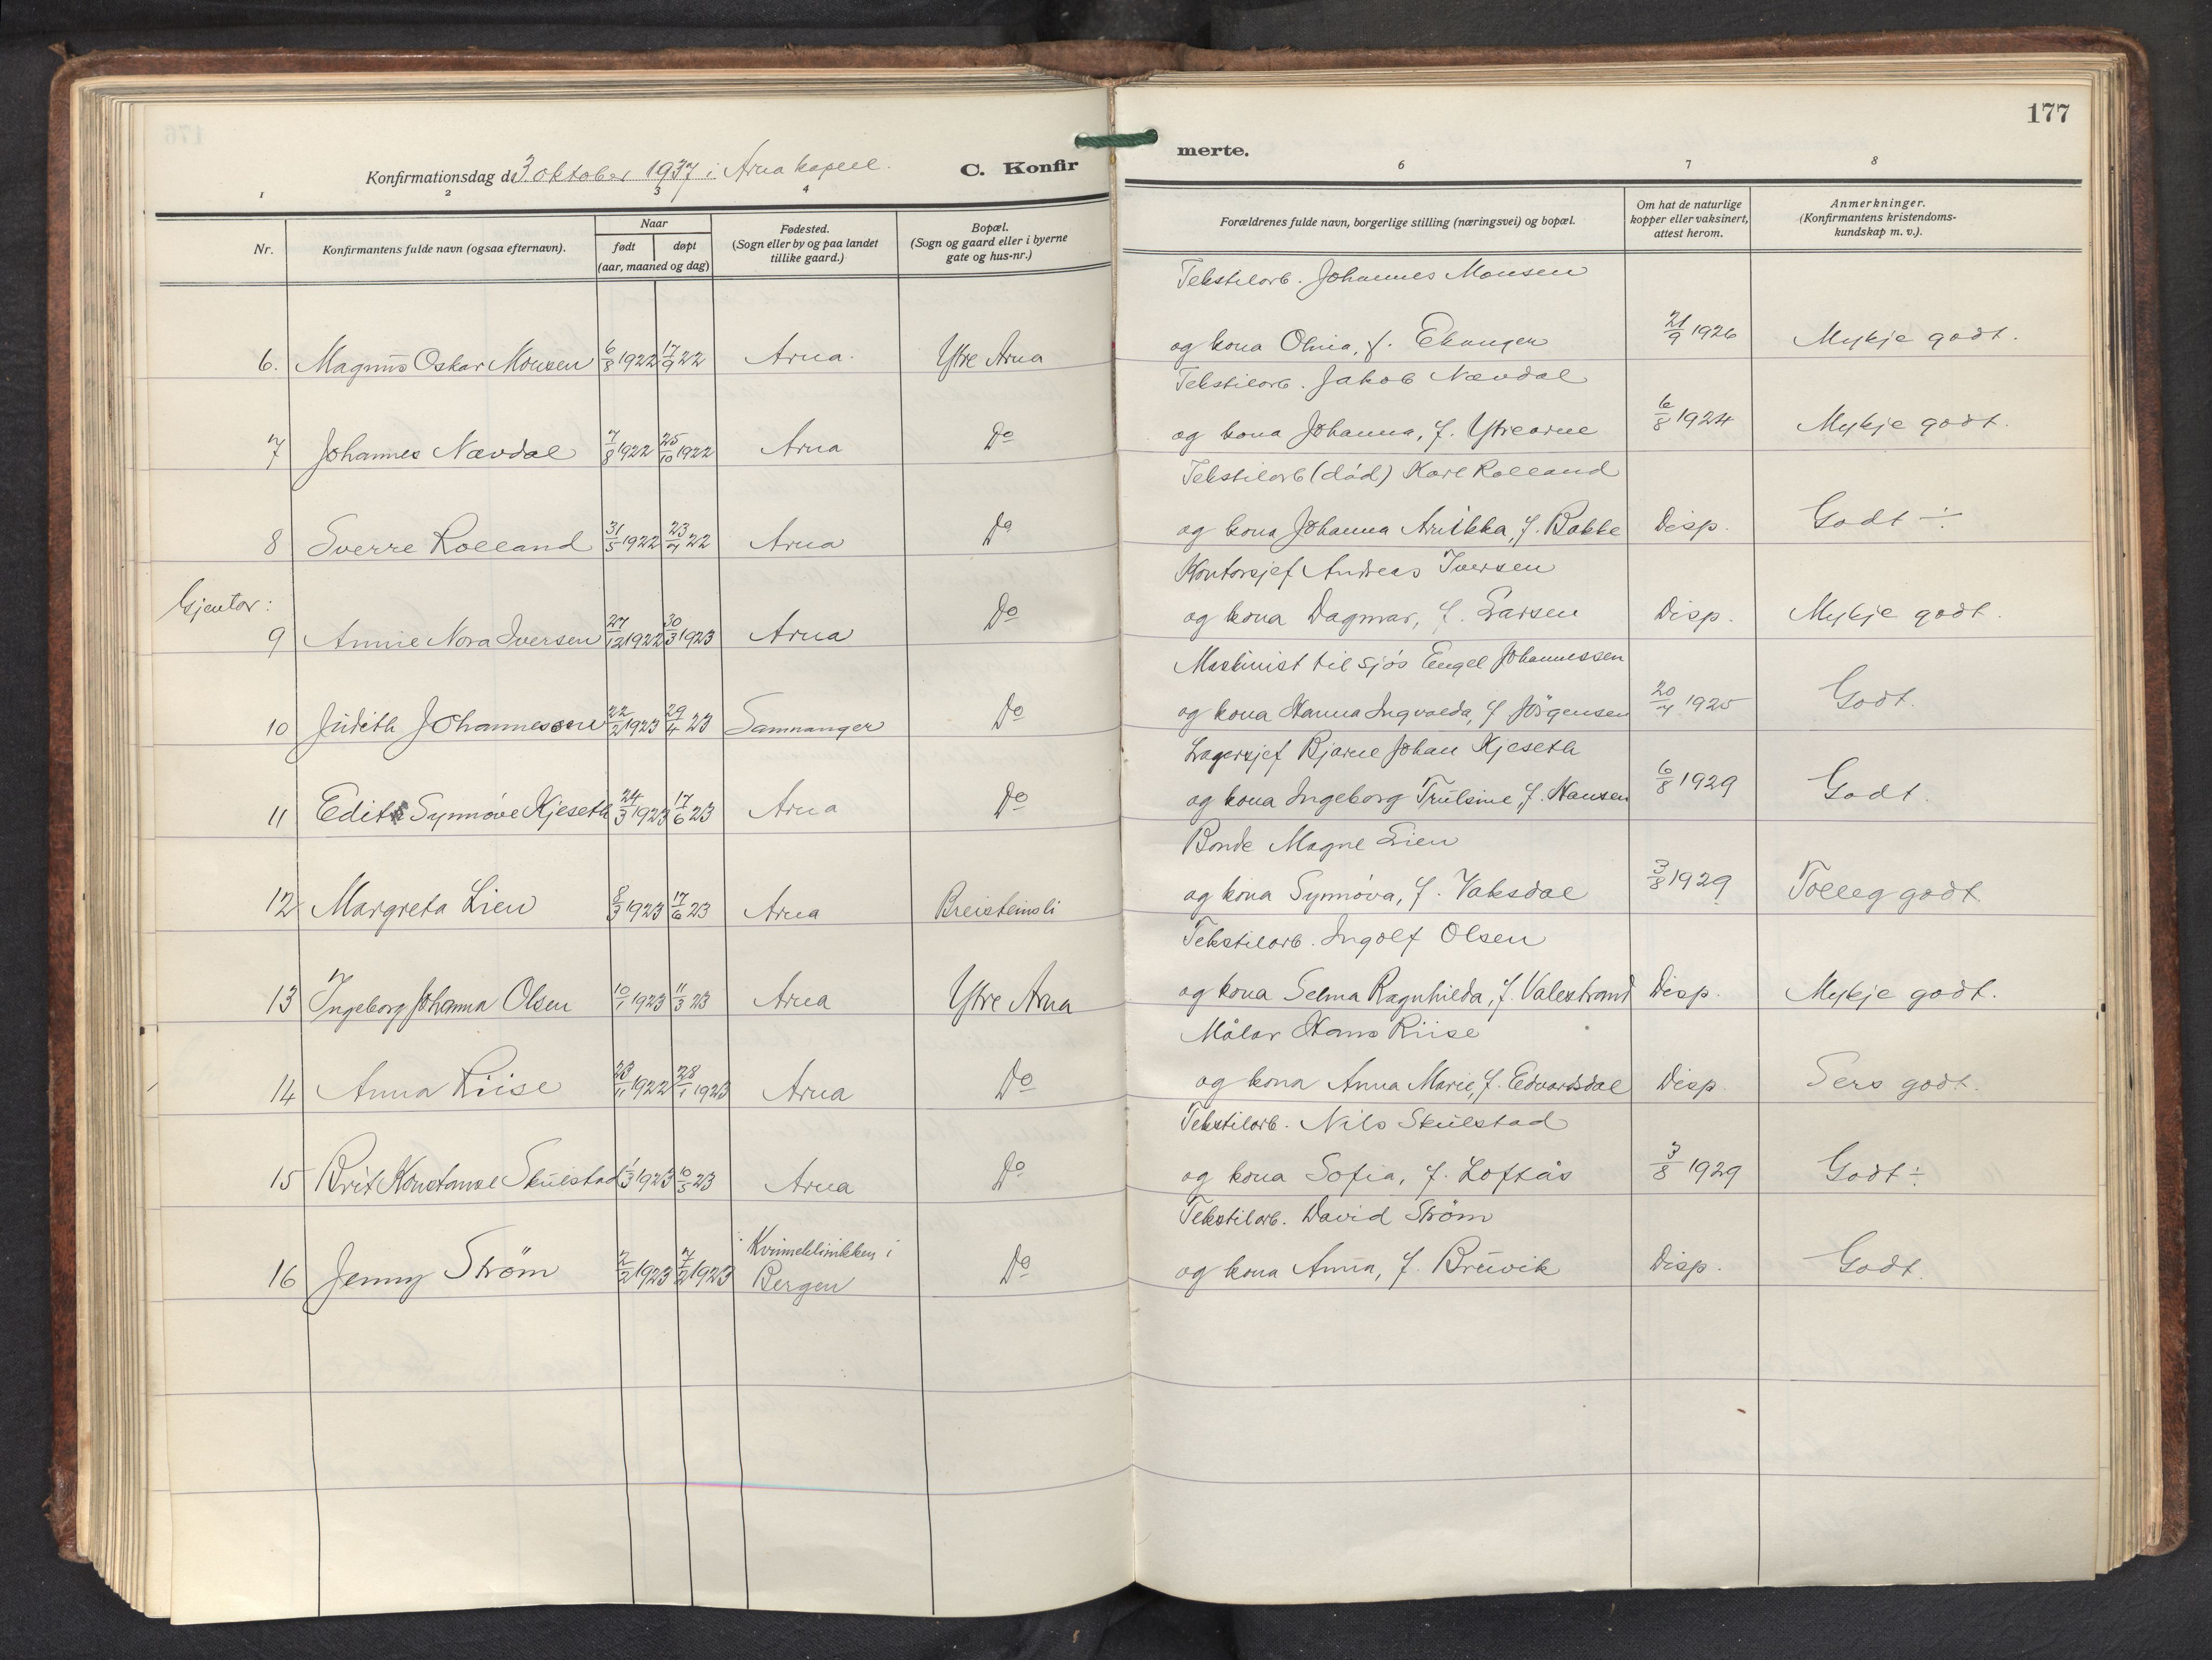 177
Konfirmationsdag d. 3 oktober 1937 i Arna kapell. C. Konfirmerte.
1 2 3 4 6 7 8
Nr. Konfirmantens fulde navn (ogsaa efternavn). Naar født døpt (aar, maaned og dag) Fødested. (Sogn eller by og paa landet tillike gaard.) Bopæl. (Sogn og gaard eller i byerne gate og hus-nr.) Forældrenes fulde navn, borgerlige stilling (næringsvei) og bopæl. Om hat de naturlige kopper eller vaksinert, attest herom. Anmerkninger. (Konfirmantens kristendomskundskap m. v.).
Tekstilarb. Johannes Monsen
6. Magnus Oskar Monsen 6/8 1922 17/9 22 Arna. Ytre Arna og kona Olina, f. Ekanger 21/9 1926 Mykje godt.
Tekstilarb. Jakob Nævdal
7 Johannes Nævdal 7/8 1922 25/10 1922 Arna Do og kona Johanna, f. Ytrearne 6/8 1924 Mykje godt.
Tekstilarb (død) Karl Rolland
8 Sverre Rolland 31/5 1922 23/7 22 Arna Do og kona Johanna Arikka, f. Bakke Disp. Godt ÷
Kontorsjef Andreas Iversen
Gjentor:
9 Annie Nora Iversen 27/12 1922 30/3 1923 Arna Do og kona Dagmar, f. Larsen Disp. Mykje godt.
Maskinist til sjøs Engel Johannessen
10 Judith Johannessen 22/2 1923 29/4 23 Samnanger Do og kona Hanna Ingvalda, f Jörgensen 20/7 1925 Godt.
Lagersjef Bjarne Johan Kjeseth
11 Edith Synnøve Kjeseth 24/3 1923 17/6 23 Arna Do og kona Ingeborg Trulsine, f. Hansen 6/8 1929 Godt.
Bonde Magne Lien
12 Margreta Lien 8/3 1923 17/6 23 Arna Breisteinsli og kona Synnøva, f. Vaksdal 3/8 1929 Tolleg godt.
Tekstilarb. Ingolf Olsen
13 Ingeborg Johanna Olsen 10/1 1923 11/3 23 Arna Ytre Arna og kona Selma Ragnhilda, f. Valestrand Disp. Mykje godt.
Målar Hans Riise
14 Anna Riise 23/11 1922 28/1 1923 Arna Do og kona Anna Marie, f. Edvardsdal Disp. Sers godt.
Tekstilarb. Nils Skulstad
15 Brit Konstanse Skulstad 1/3 1923 10/5 23 Arna Do og kona Sofia, f. Loftås 3/8 1929 Godt ÷
Tekstilarb. David Strøm
16 Jenny Strøm 2/2 1923 7/2 1923 Kvinneklinikken i Bergen Do og kona Anna, f. Bruvik Disp. Godt.